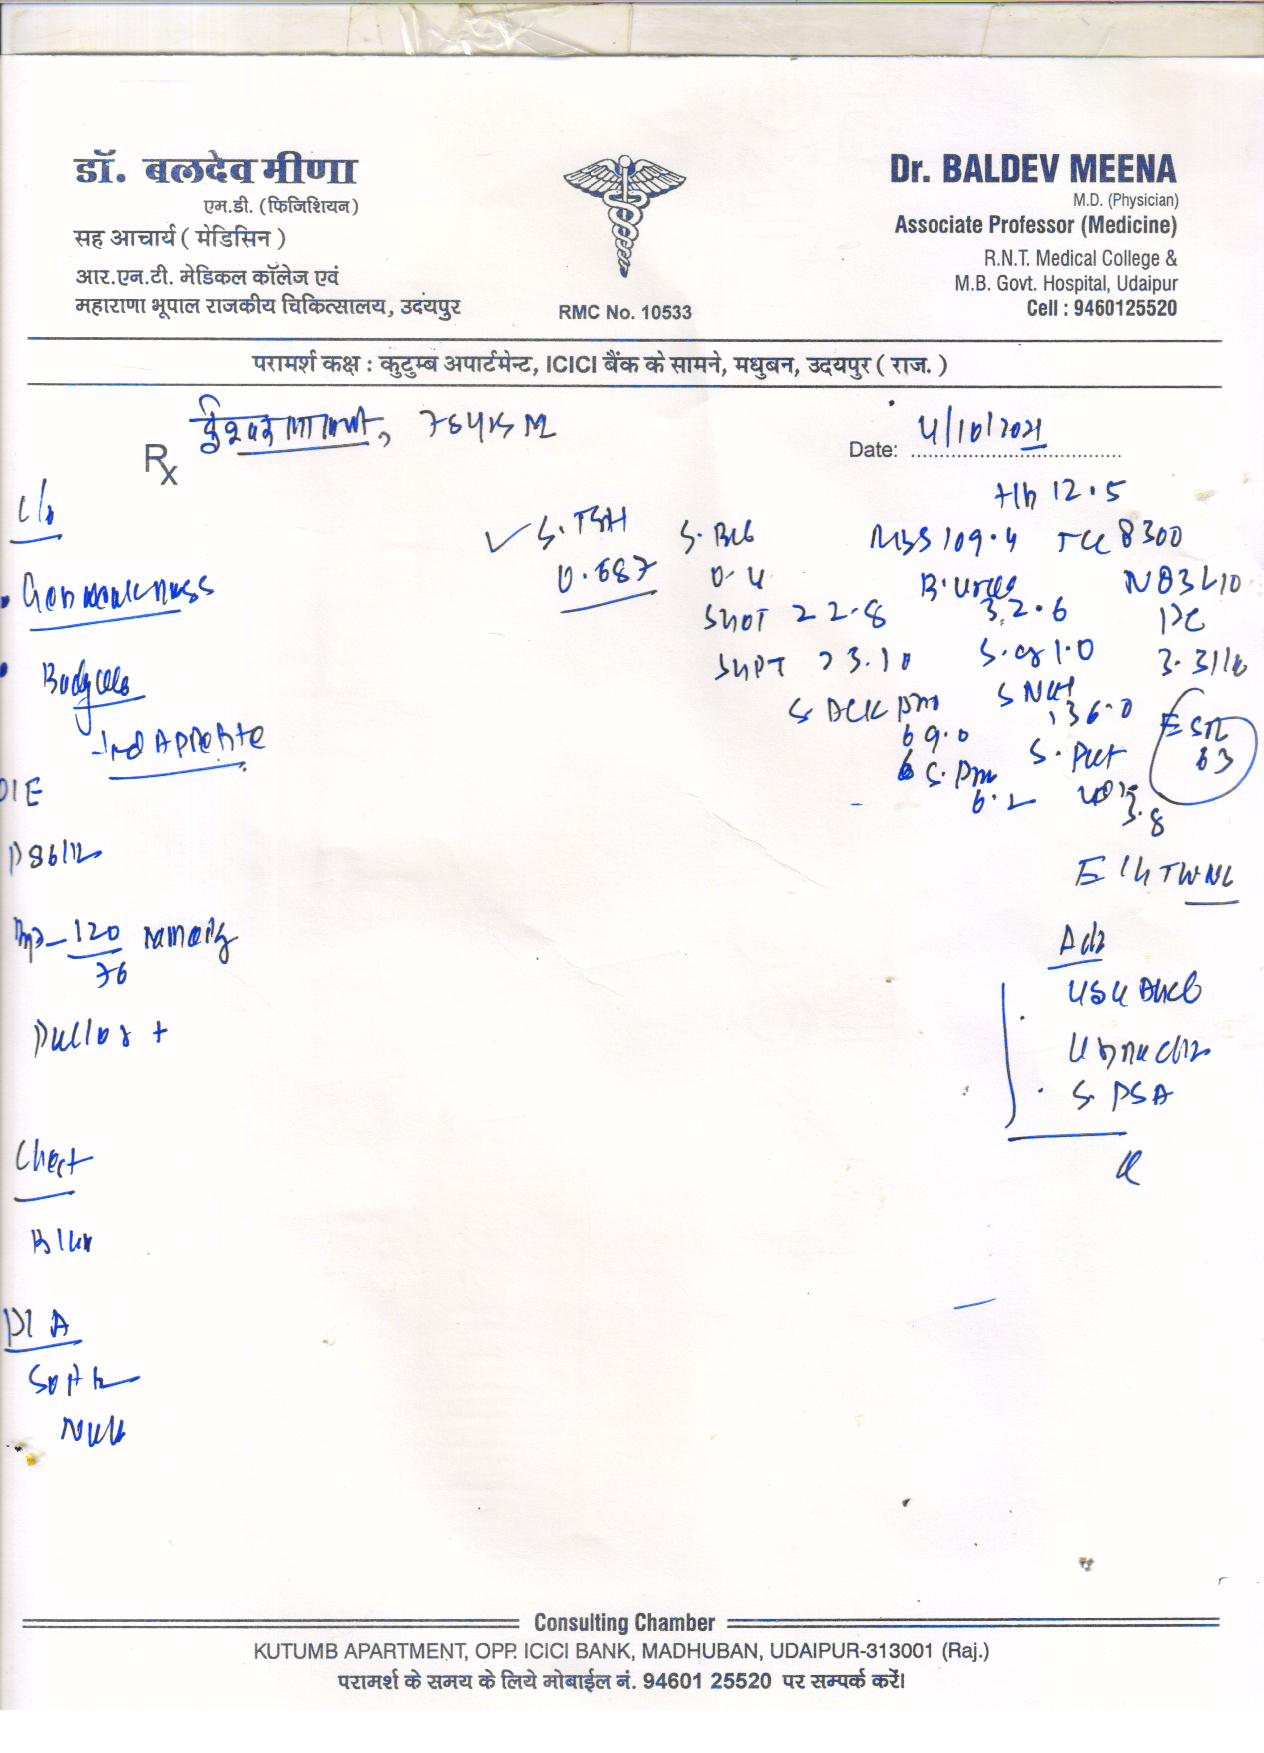 डॉ. बलदेव मीणा
एम.डी. (फिजिशियन)
सह आचार्य ( मेडिसिन )
आर.एन.टी. मेडिकल कॉलेज एवं
महाराणा भूपाल राजकीय चिकित्सालय, उदयपुर
RMC No. 10533
Dr. BALDEV MEENA
M.D. (Physician)
Associate Professor (Medicine)
R.N.T. Medical College &
M.B. Govt. Hospital, Udaipur
Cell : 9460125520
परामर्श कक्ष : कुटुम्ब अपार्टमेन्ट, ICICI बैंक के सामने, मधुबन, उदयपुर ( राज. )
78 yrs M
Rx
Date: 4/10/2021
C/o
Gen weakness
Bodyache
Appetite
O/E
P 86/m
BP - 120/76 mmHg
Pallor +
Chest
P/A
Soft
S. TSH
0.687
Hb 12.5
RBS 109.4 TLC 8300
B. Urea 32.6
N83 L10
SGOT 22.8
SGPT 23.10
S. Cr 1.0
S Na+ 136.0
ESR 63
69.0
6.2
3.8
WNL
Adv
S. PSA
Consulting Chamber
KUTUMB APARTMENT, OPP. ICICI BANK, MADHUBAN, UDAIPUR-313001 (Raj.)
परामर्श के समय के लिये मोबाईल नं. 94601 25520 पर सम्पर्क करें।